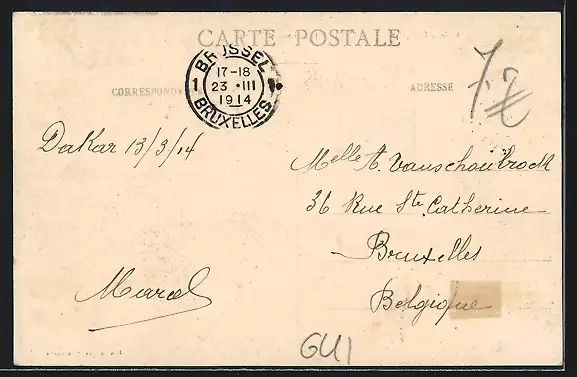 CARTE POSTALE
BRUSSEL
1 17-18 1
23 · III
1914
BRUXELLES
CORRESPONDA
ADRESSE
Dakar 13/3/14
Melle A. Vanschoubroeck
36 Rue Ste. Catherine
Bruxelles
Belgique
Marcel
GUI